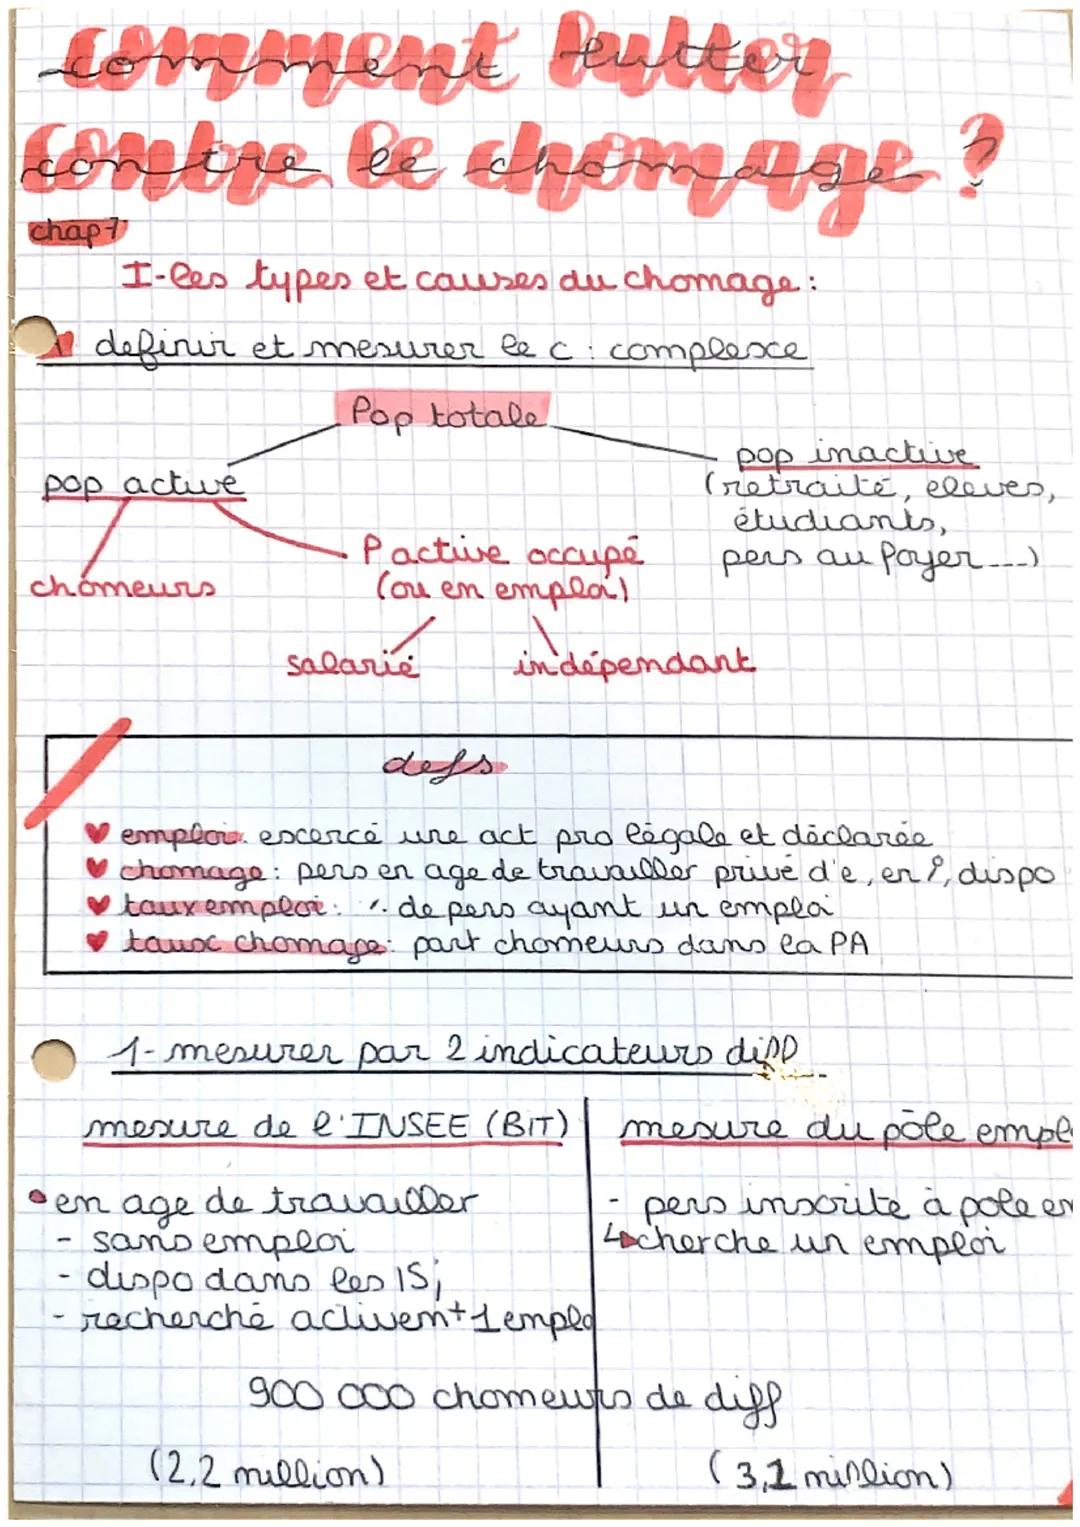 comment lutter
contre le chomage ?
chap 7
I-les types et causes du chomage :
1 definir et mesurer le c : complexe
Pop totale
pop active
pop inactive
(retraité, eleves,
étudiants,
pers au foyer ---)
chomeurs
P active occupé
(ou en emploi)
salarié
indépendant
defs
♥ emploi: excercé une act pro légale et déclarée
♥ chomage: pers en age de travailler privé d'e, en r, dispo
♥ taux emploi: % de pers ayant un emploi
♥ taux chomage: part chomeurs dans la PA
1- mesurer par 2 indicateurs diff
mesure de l'INSEE (BiT)
mesure du pôle emplo
• en age de travailler
- sans emploi
- dispo dans les 15j
- recherché activemt 1 emplo
- pers inscrite à pole em
↳ cherche un emploi
900 000 chomeurs de diff
(2,2 million)
(3,1 million)